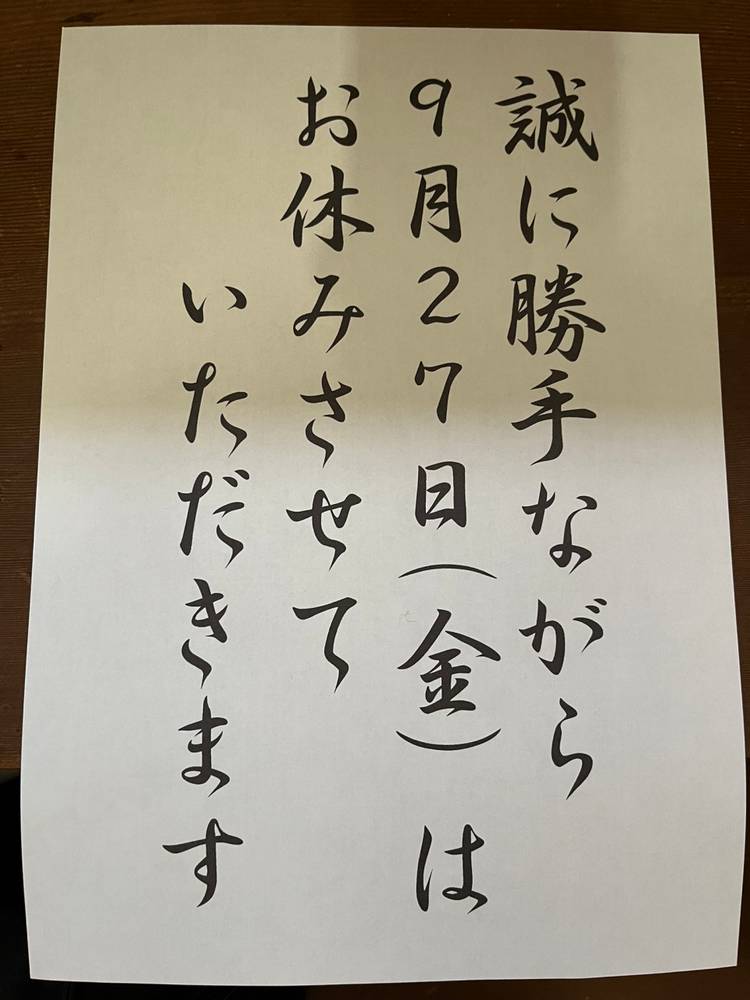 誠に勝手ながら
９月２７日（金）は
お休みさせて
いただきます